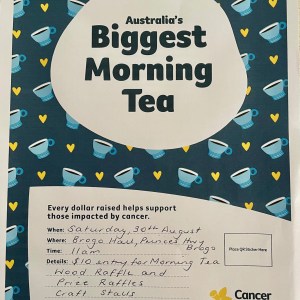 Australia's
Biggest
Morning
Tea
Every dollar raised helps support
those impacted by cancer.
When: Saturday, 30th August
Where: Brogo Hall, Princes Hwy
Brogo
Time: 11am
Place QR Sticker Here
Details: $10 entry for Morning Tea
Wood Raffle and
Prize Raffles
Craft Stalls
Cancer